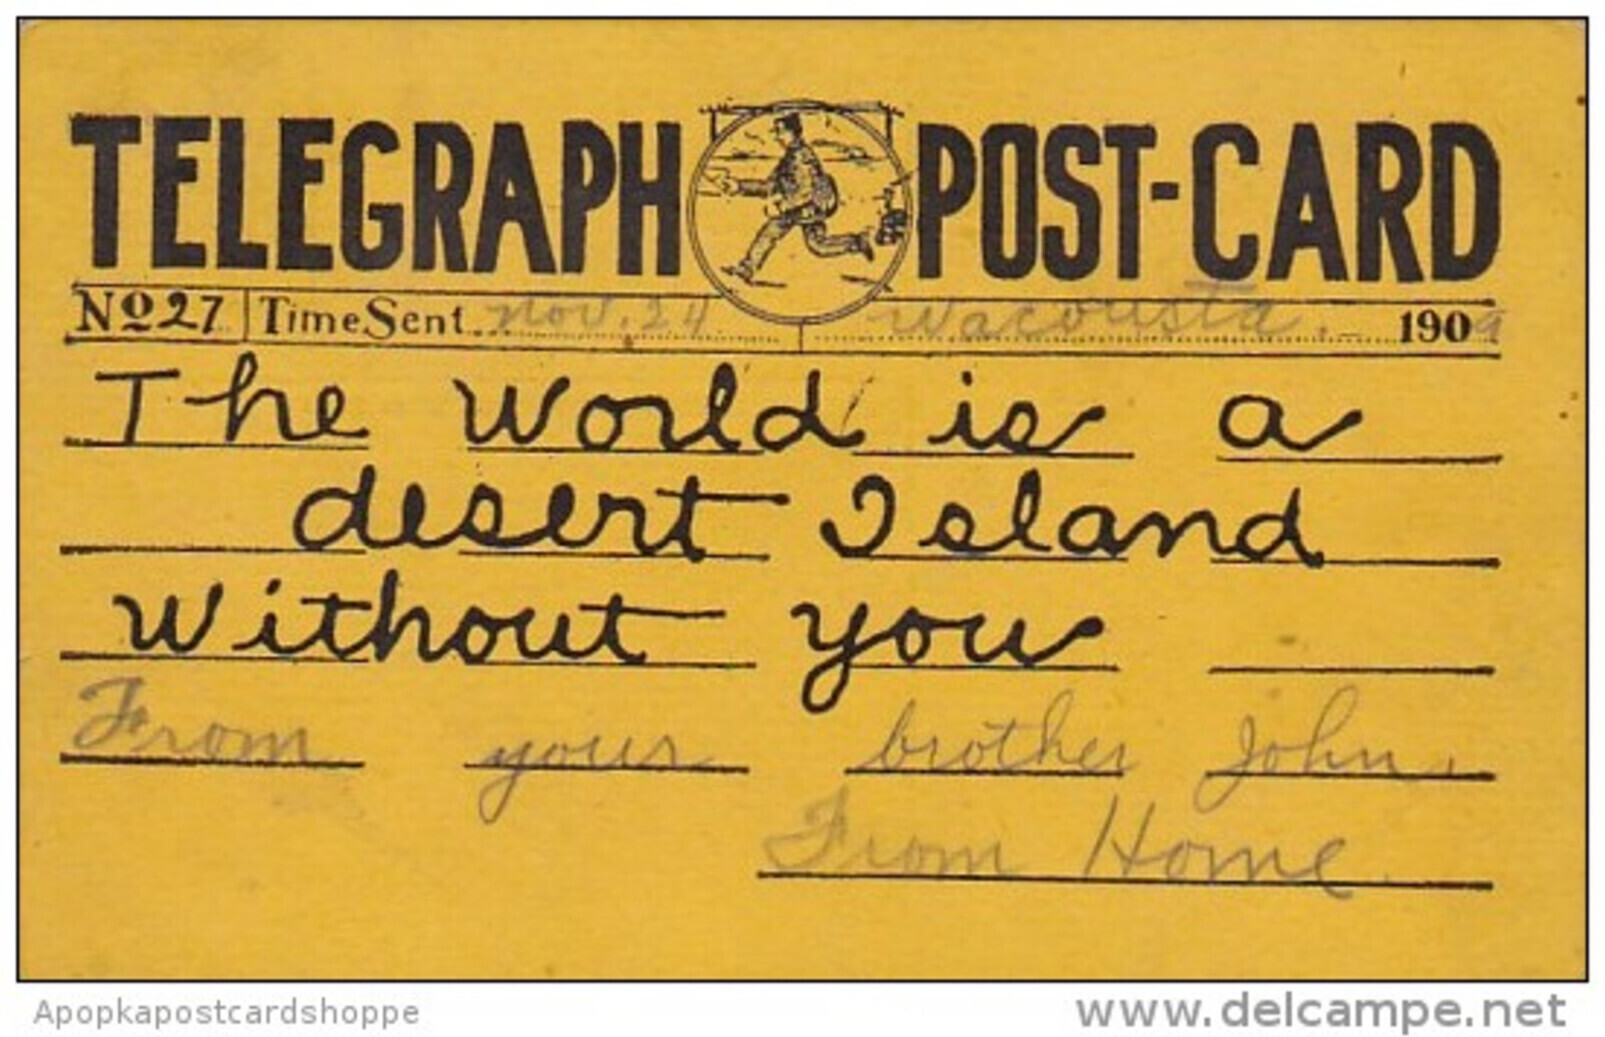 TELEGRAPH POST-CARD
No 27 Time Sent Nov. 24 Wacousta. 1909
The World is a
desert Island
Without you
From your brother John.
From Home.
Apopkapostcardshoppe www.delcampe.net